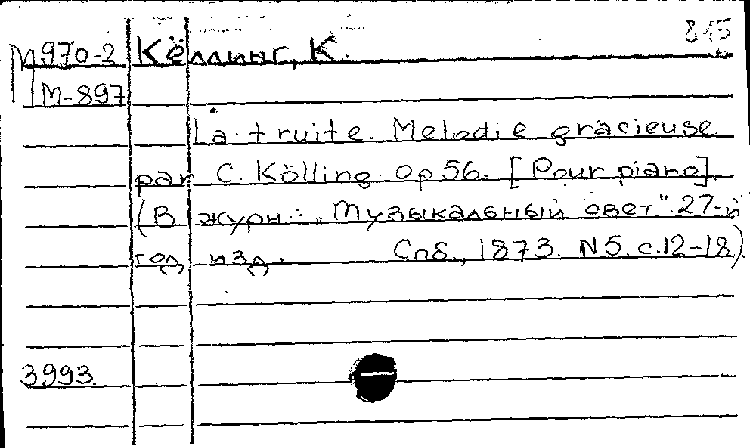 845
М970-2 Кёллинг, К.
М-897
La truite. Melodie gracieuse
par C. Kölling. Op 56. [Pour piano].
(В журн.: „Музыкальный свет". 27-й
год изд. Спб., 1873. N5. с.12-18).
3993